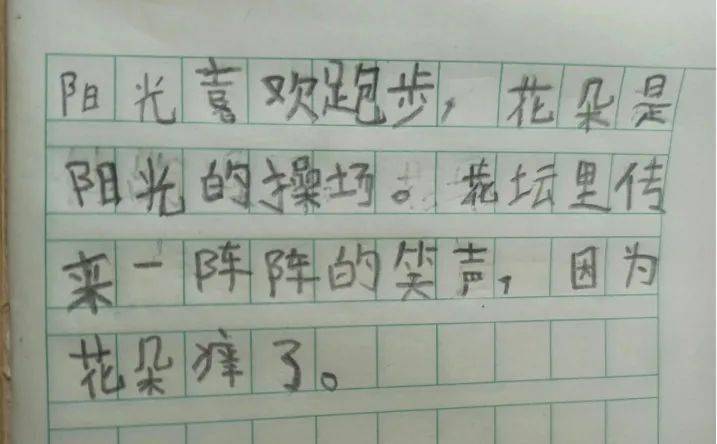 阳光喜欢跑步，花朵是
阳光的操场。花坛里传
来一阵阵的笑声，因为
花朵痒了。